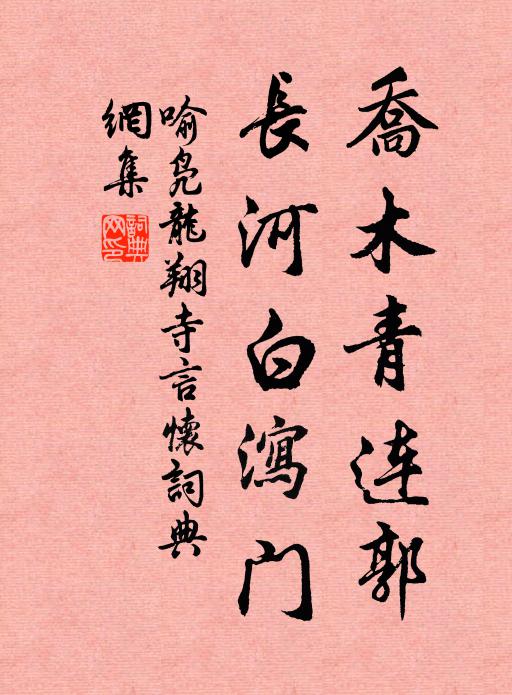 喬木青连郭
長河白瀉门
喻凫龍翔寺言懷詞典
網集
詞典网印